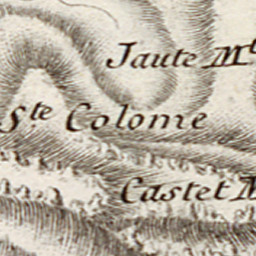 Jaute M
Ste Colome
Castet M